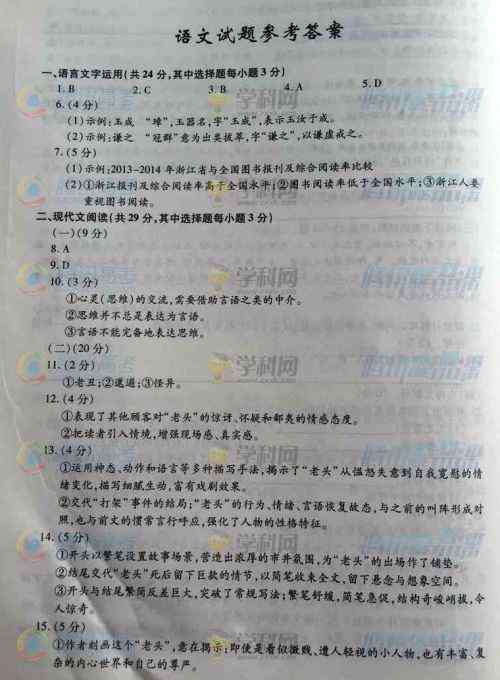 语文试题参考答案
一、语言文字运用(共24分,其中选择题每小题3分)
1.B 2.C 3 B 4.A 5.D
6.(4分)
(1)示例:玉成 “璋”,玉器名,字“玉成”,表示玉汝于成。
(2)示例:谦之 “冠群”意为出类拔萃,字“谦之”,以谦虚戒之。
7.(5分)
(1)示例:2013-2014年浙江省与全国图书报刊及综合阅读率比较
(2)①浙江报刊及综合阅读率高于全国水平;②图书阅读率低于全国水平;③浙江人要
重视图书阅读。
二、现代文阅读(共29分,其中选择题每小题3分)
(一)(9分)
8.A
9.D
10.(3分)
①心灵(思维)的交流,需要借助言语之类的中介。
②思维并不总是表达为言语。
③言语不能完备地表达思维。
(二)(20分)
11.(2分)
①老丑;②邋遢;③怪异。
12.(4分)
①表现了其他顾客对“老头”的惊讶、怀疑和鄙夷的情感态度。
②把读者引入情境,增强现场感、真实感。
13.(4分)
①运用神态、动作和语言等多种描写手法,揭示了“老头”从愠怒失意到自我宽慰的情
绪变化,描写细腻生动,富有戏剧效果。
②交代“打架”事件的结局;“老头”的行为、情绪、言语恢复故态,与之前的叫阵形成对
照,也与前文的惯常言行呼应,强化了人物的性格特征。
14.(5分)
①开头以繁笔设置故事场景,营造出浓厚的市井氛围,为“老头”的出场作了铺垫。
②结尾交代“老头”死后留下巨款的情节,以简笔收束全文,留下悬念与想象空间。
③开头与结尾繁简反差巨大,突破了常规写法;繁笔舒缓,简笔急促,结构奇峻峭拔,令
人惊奇。
15.(5分)
①作者刻画这个“老头”,意在揭示:即使是看似微贱、遭人轻视的小人物,也有丰富、复
杂的内心世界和自己的尊严。
学科网
学科网
学科网